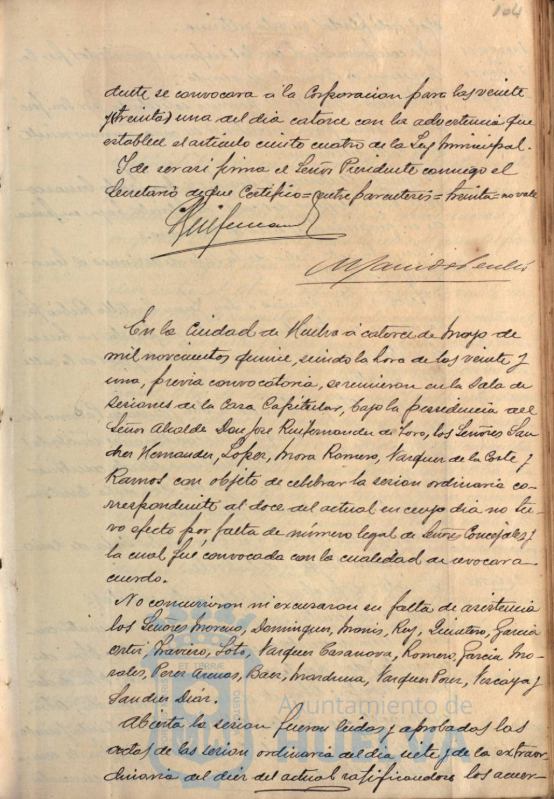 104
dente se convocara á la Corporacion para las veinte
y (treinta) una del dia catorce con la advertencia que
establece el articulo ciento cuatro de la Ley Municipal.
Y de ser asi firma el Señor Presidente conmigo el
Secretario de que Certifico = entre parentesis = treinta = no vale
En la Ciudad de Huelva á catorce de Mayo de
mil novecientos quince, siendo la hora de las veinte y
una, previa convocatoria, se reunieron en la Sala de
sesiones de la Casa Capitular, bajo la presidencia del
Señor Alcalde Don José Ruifernandez de Toro, los Señores San
chez Hernandez, Lopez, Mora Romero, Vazquez de la Corte y
Ramos con objeto de celebrar la sesion ordinaria co-
rrespondiente al doce del actual en cuyo dia no tu-
vo efecto por falta de número legal de Señores Concejales y
la cual fué convocada con la cualidad de
cuerdo.
No concurrieron ni excusaron su falta de asistencia
los Señores Moreno, Dominguez, Monis, Rey, Quintero, Garcia
Traviero, Soto, Vazquez Casanova, Romero, Garcia Mo-
rales, Perez Baez, Marchena, Vazquez Perez, Vizcaya y
Sanchez Diaz.
Abierta la sesion fueron leidas y aprobadas las
actas de las sesion ordinaria del dia siete y de la extraor
dinaria del diez del actual ratificandose los acuer-
Ayuntamiento de
HUELVA